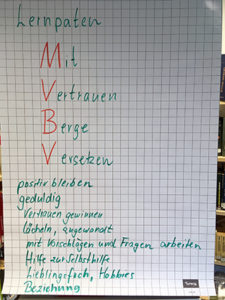 Leinpaten
Mit
Vertrauen
Berge
Versetzen
positiv bleiben
geduldig
Vertrauen gewinnen
Lächeln, angewandt
mit Vorschlägen und Fragen arbeiten
Hilfe zur Selbsthilfe
Lieblingsfach, Hobbies
Beziehung